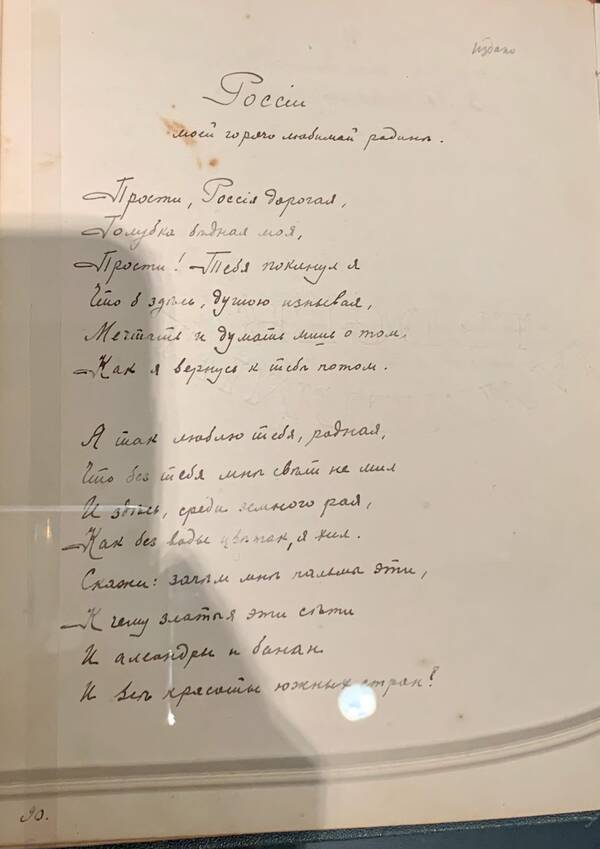 издано
Россіи
моей горячо любимай родинѣ.
Прости, Россія дорогая,
Голубка бѣдная моя,
Прости! Тебя покинулъ я
Что б здѣсь, душою изнывая,
Мечтать и думать лишь о том,
Какъ я вернусь к тебѣ потом.
Я так люблю тебя, родная,
Что без тебя мнѣ свѣт не мил
И здѣсь, среди земного рая,
Как без воды цвѣток, я хил.
Скажи: зачѣм мнѣ пальмы эти,
К чему златыя эти сѣти
И алеандры и банан
И всѣ красоты южных стран?
90.